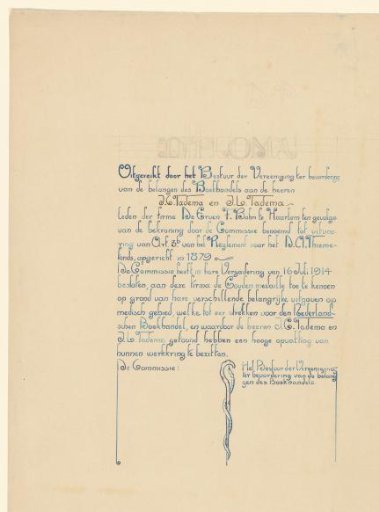 Uitgereikt door het Bestuur der Vereeniging ter bevordering
van de belangen des Boekhandels aan de heeren
K. Tadema en J.L. Tadema
Leden der firma De Erven F. Bohn te Haarlem ten gevolge
van de bekroning door de Commissie benoemd tot uitvoe-
ring van Art. 3 van het Reglement voor het D.A. Thieme-
fonds, opgericht in 1879
De Commissie heeft in hare Vergadering van 16 Juli 1914
besloten aan deze firma de Gouden medaille toe te kennen
op grond van hare verschillende belangrijke uitgaven op
medisch gebied, welke tot eer strekken voor den Nederland-
schen Boekhandel, en waardoor de heeren Tadema en
J.L. Tadema, getoond hebben een hooge opvatting van
hunnen werkkring te bezitten.
De Commissie:
Het Bestuur der Vereeniging
ter bevordering van de belan-
gen des Boekhandels